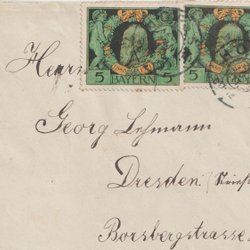 Herrn
5 BAYERN 5
5 BAYERN
Georg Lehmann
Dresden
Borsbergstrasse